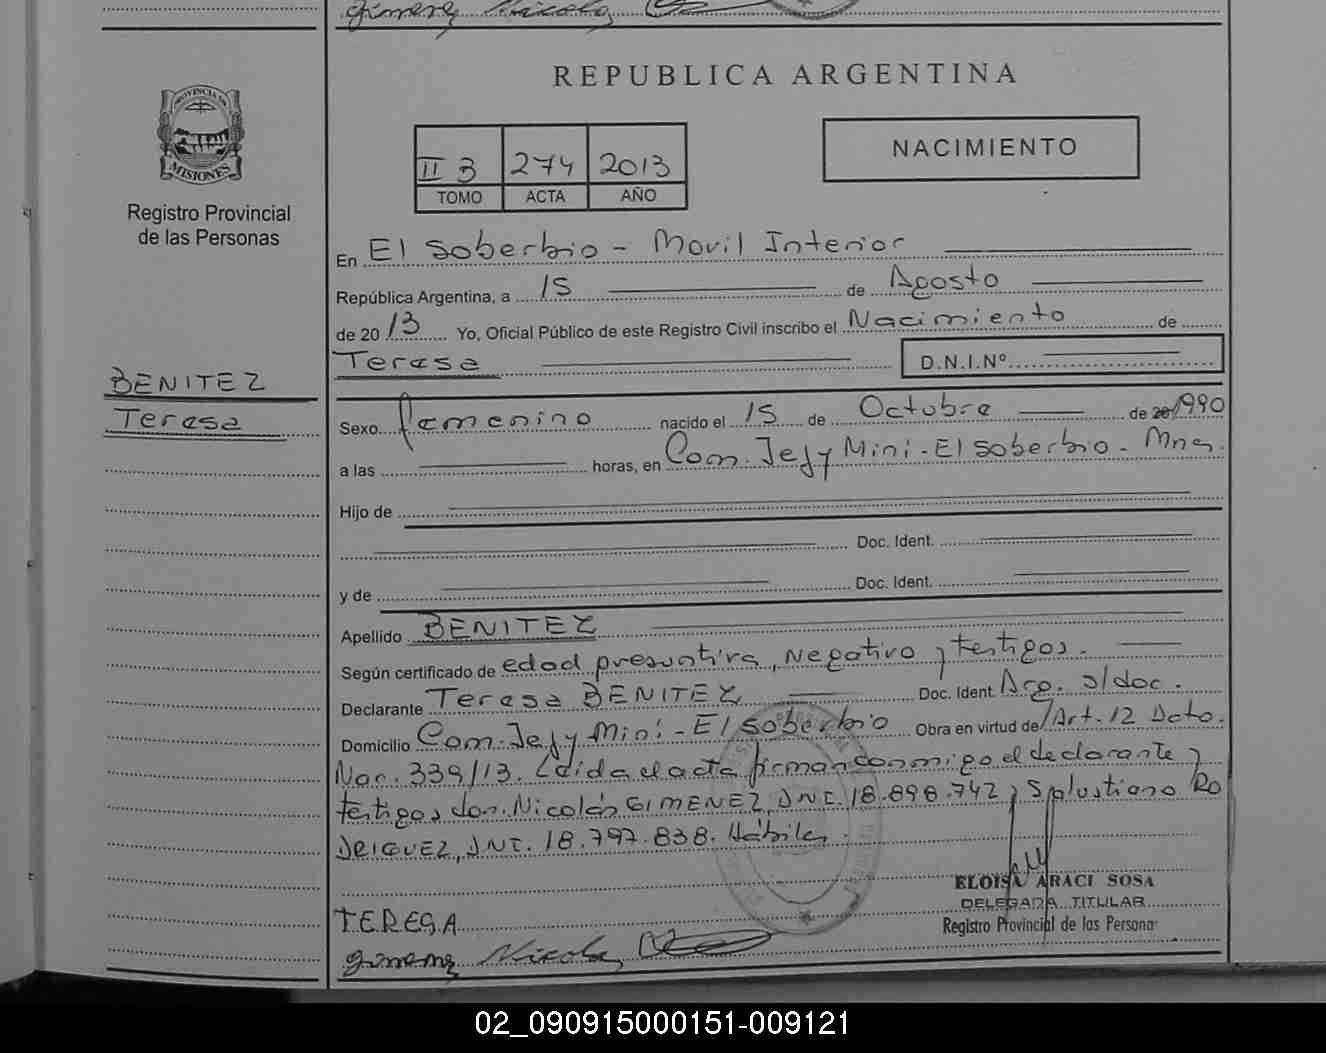 Gimenez Nicolas
PROVINCIA DE
MISIONES
Registro Provincial
de las Personas
BENITEZ
Teresa
REPUBLICA ARGENTINA
II 3 274 2013
TOMO ACTA AÑO
NACIMIENTO
En El Soberbio - Movil Interior
República Argentina, a 15 de Agosto
de 2013 Yo, Oficial Público de este Registro Civil inscribo el Nacimiento de
Teresa D.N.I.Nº
Sexo femenino nacido el 15 de Octubre de 20 1990
a las horas, en Com. Jejy Mini - El Soberbio - Mnes.
Hijo de
Doc. Ident.
y de Doc. Ident.
Apellido BENITEZ
Según certificado de edad presuntiva, Negativo y testigos.
Declarante Teresa BENITEZ Doc. Ident Arg. s/doc.
Domicilio Com. Jejy Mini - El Soberbio Obra en virtud de Art. 12 Dcto.
Nac. 339/13. Leida el acta firman conmigo el declarante y
testigos don. Nicolás GIMENEZ, DNI. 18.898.742 y Salustiano RO
DRIGUEZ, DNI. 18.797.838. Hábiles.
ELOISA ARACI SOSA
DELEGADA TITULAR
Registro Provincial de las Persona
TERESA
Gimenez Nicolas
02_090915000151-009121